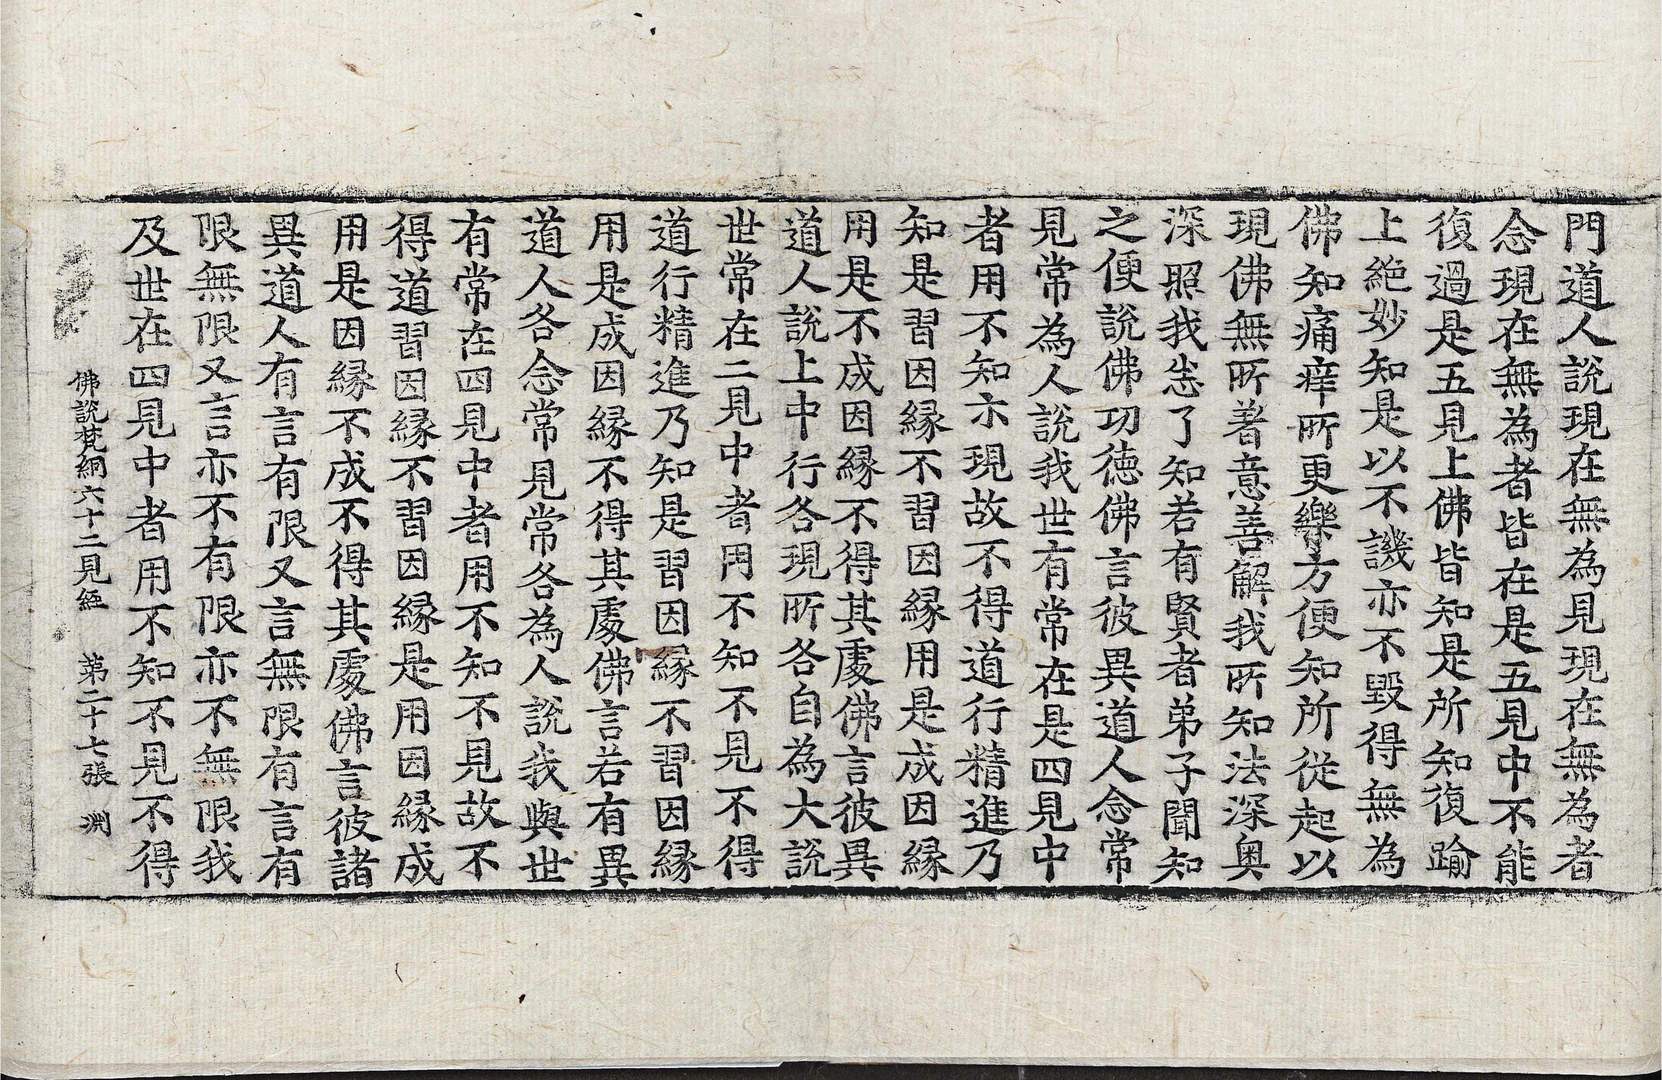 門道人說現在無為見現在無為者
念現在無為者皆在是五見中不能
復過是五見上佛皆知是所知復踰
上絶妙知是以不譏亦不毀得無為
佛知痛痒所更樂方便知所從起以
現佛無所著意善解我所知法深奧
深照我悉了知若有賢者弟子聞知
之便說佛功德佛言彼異道人念常
見常為人說我世有常在是四見中
者用不知亦現故不得道行精進乃
知是習因緣不習因緣用是成因緣
用是不成因緣不得其處佛言彼異
道人說上中行各現所各自為大說
世常在二見中者用不知不見不得
道行精進乃知是習因緣不習因緣
用是成因緣不得其處佛言若有異
道人各念常見常各為人說我與世
有常在四見中者用不知不見故不
得道習因緣不習因緣是用因緣成
用是因緣不成不得其處佛言彼諸
異道人有言有限又言無限有言有
限無限又言亦不有限亦不無限我
及世在四見中者用不知不見不得
佛說梵網六十二見經 第二十七張 渕